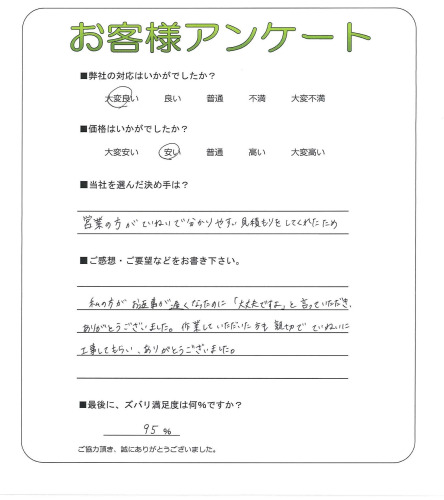 お客様アンケート
■弊社の対応はいかがでしたか?
大変良い 良い 普通 不満 大変不満
■価格はいかがでしたか?
大変安い 安い 普通 高い 大変高い
■当社を選んだ決め手は?
営業の方がていねいで分かりやすい見積もりをしてくれたため
■ご感想・ご要望などをお書き下さい。
私の方がお返事が遅くなったのに「大丈夫ですよ」と言っていただき、
ありがとうございました。作業していただいた方も親切でていねいに
工事してもらい、ありがとうございました。
■最後に、ズバリ満足度は何%ですか?
95 %
ご協力頂き、誠にありがとうございました。